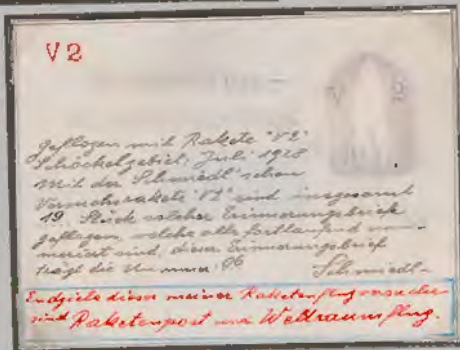 V2
V 2
geflogen mit Rakete "V2"
Schöckelgebiet, Juli 1928
Mit der Schmiedl'schen
Versuchsrakete "V2" sind insgesamt
19 Stück solcher Erinnerungsbriefe
geflogen, welche alle fortlaufend num-
meriert sind, dieser Erinnerungsbrief
trägt die Nummer
Schmiedl-
Endziele dieser meiner Raketenflugversuche
sind Raketenpost und Weltraumflug.